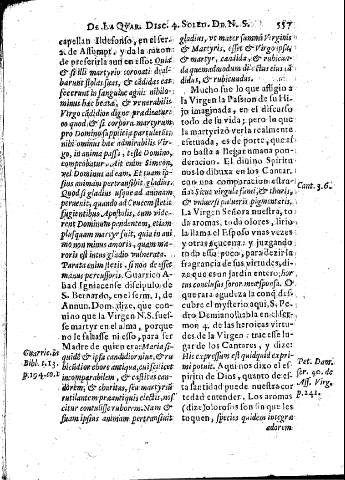 DE LA QVAR. Disc. 4. SOLEN. DE N. S. 557
capellan Ildefonso, en el ser.
2. de Assumpt. y da la razon
de preferirla aun en esso: Quia
& si illi martyrio coronati deal-
baruut stolas suas, & cādidas
fecerunt in sanguine agni: nihilo-
minus hæc beata, & venerabilis
Virgo cādidior digne prædicatur:
quod & si corpora martyrum
pro Domino supplicijs patuerint:
nihilominus hæc admirabilis Vir-
go, in anima passa, teste Domino
comprobatur. Ait enim Simeon,
vel Dominus ad eam. Et tuam ip-
sius animam pertransibit gladius.
Quod si gladius vsque ad animam
peruenit, quando ad Crucem stetit
fugientibus Apostolis, cum vide-
ret Dominum pendentem, etiam
plusquam martyr fuit, quia in ani-
mo non minus amoris, quam mæ-
roris est intus gladio vulnerata.
Parata enim stetit, si non deesset
manus percussoris. Guarrico A-
bad Igniacense discipulo de
S. Bernardo, en el serm. 1. de
Annun. Dom. dize, que con-
uino que la Virgen N.S. fues-
se martyr en el alma, porque
no le faltasse ni esso, para ser
Madre de quien era: Maria si-
quidē & ipsa candidior niue, & ru-
bicūdior ebore antiquo, cui siccitas
incomparabilem, & castitas can-
dorem, & charitas, seu martyriū
rutilantem præ antiquis electis, nos-
citur contulisse ruborem. Nam &
suam ipsius animam pertransiuit
Guarric. in
Bibl. t. 13.
p. 194. co. 1
gladius, vt mater summi Virginis
& Martyris, esset & Virgo ipsa
& martyr, candida, & rubicun-
da quemadmodum dilectus eius cā-
didus, & rubicundus.
Mucho fue lo que afligio a
la Virgen la Passion de su Hi-
jo imaginada, en el discurso
todo de su vida; pero lo que
la martyrizò verla realmente
efetuada, es de porte, que a-
no basta a llegar humana pon-
deracion. El diuino Spiritu
nos lo dibuxa en los Cantar.
con vna comparacion estra-
& vniuersi pulueris pigmentarij.
La Virgen Señora nuestra, to-
da aromas, toda olores, lirio
la llama el Esposo vnas vezes
y otras açucena: y juzgando
todo esso poco, para dezir la
fragrancia de sus virtudes, di-
ze que es un jardin entero; hor-
tus conclusus soror mea sponsa. O
que rara agudeza la con q̄ des-
cubre el mysterio aqui, S. Pe-
dro Damiano! habla en el ser-
mon 4. de las heroicas virtu-
des de la Virgen: trae esse lu-
gar de los Cantares, y dize:
His expressum est quidquid expri-
mi potuit. Aqui nos dixo el es-
piritu de Dios, quanto de es-
ta santidad puede nuestra cor-
tedad entender. Los aromas
(dize) olorosos son sin que les
toquen, species quidem integræ
odorem
Cant. 3. 6.
Pet. Dam.
ser. 40. de
Ass. Virg.
p. 241.